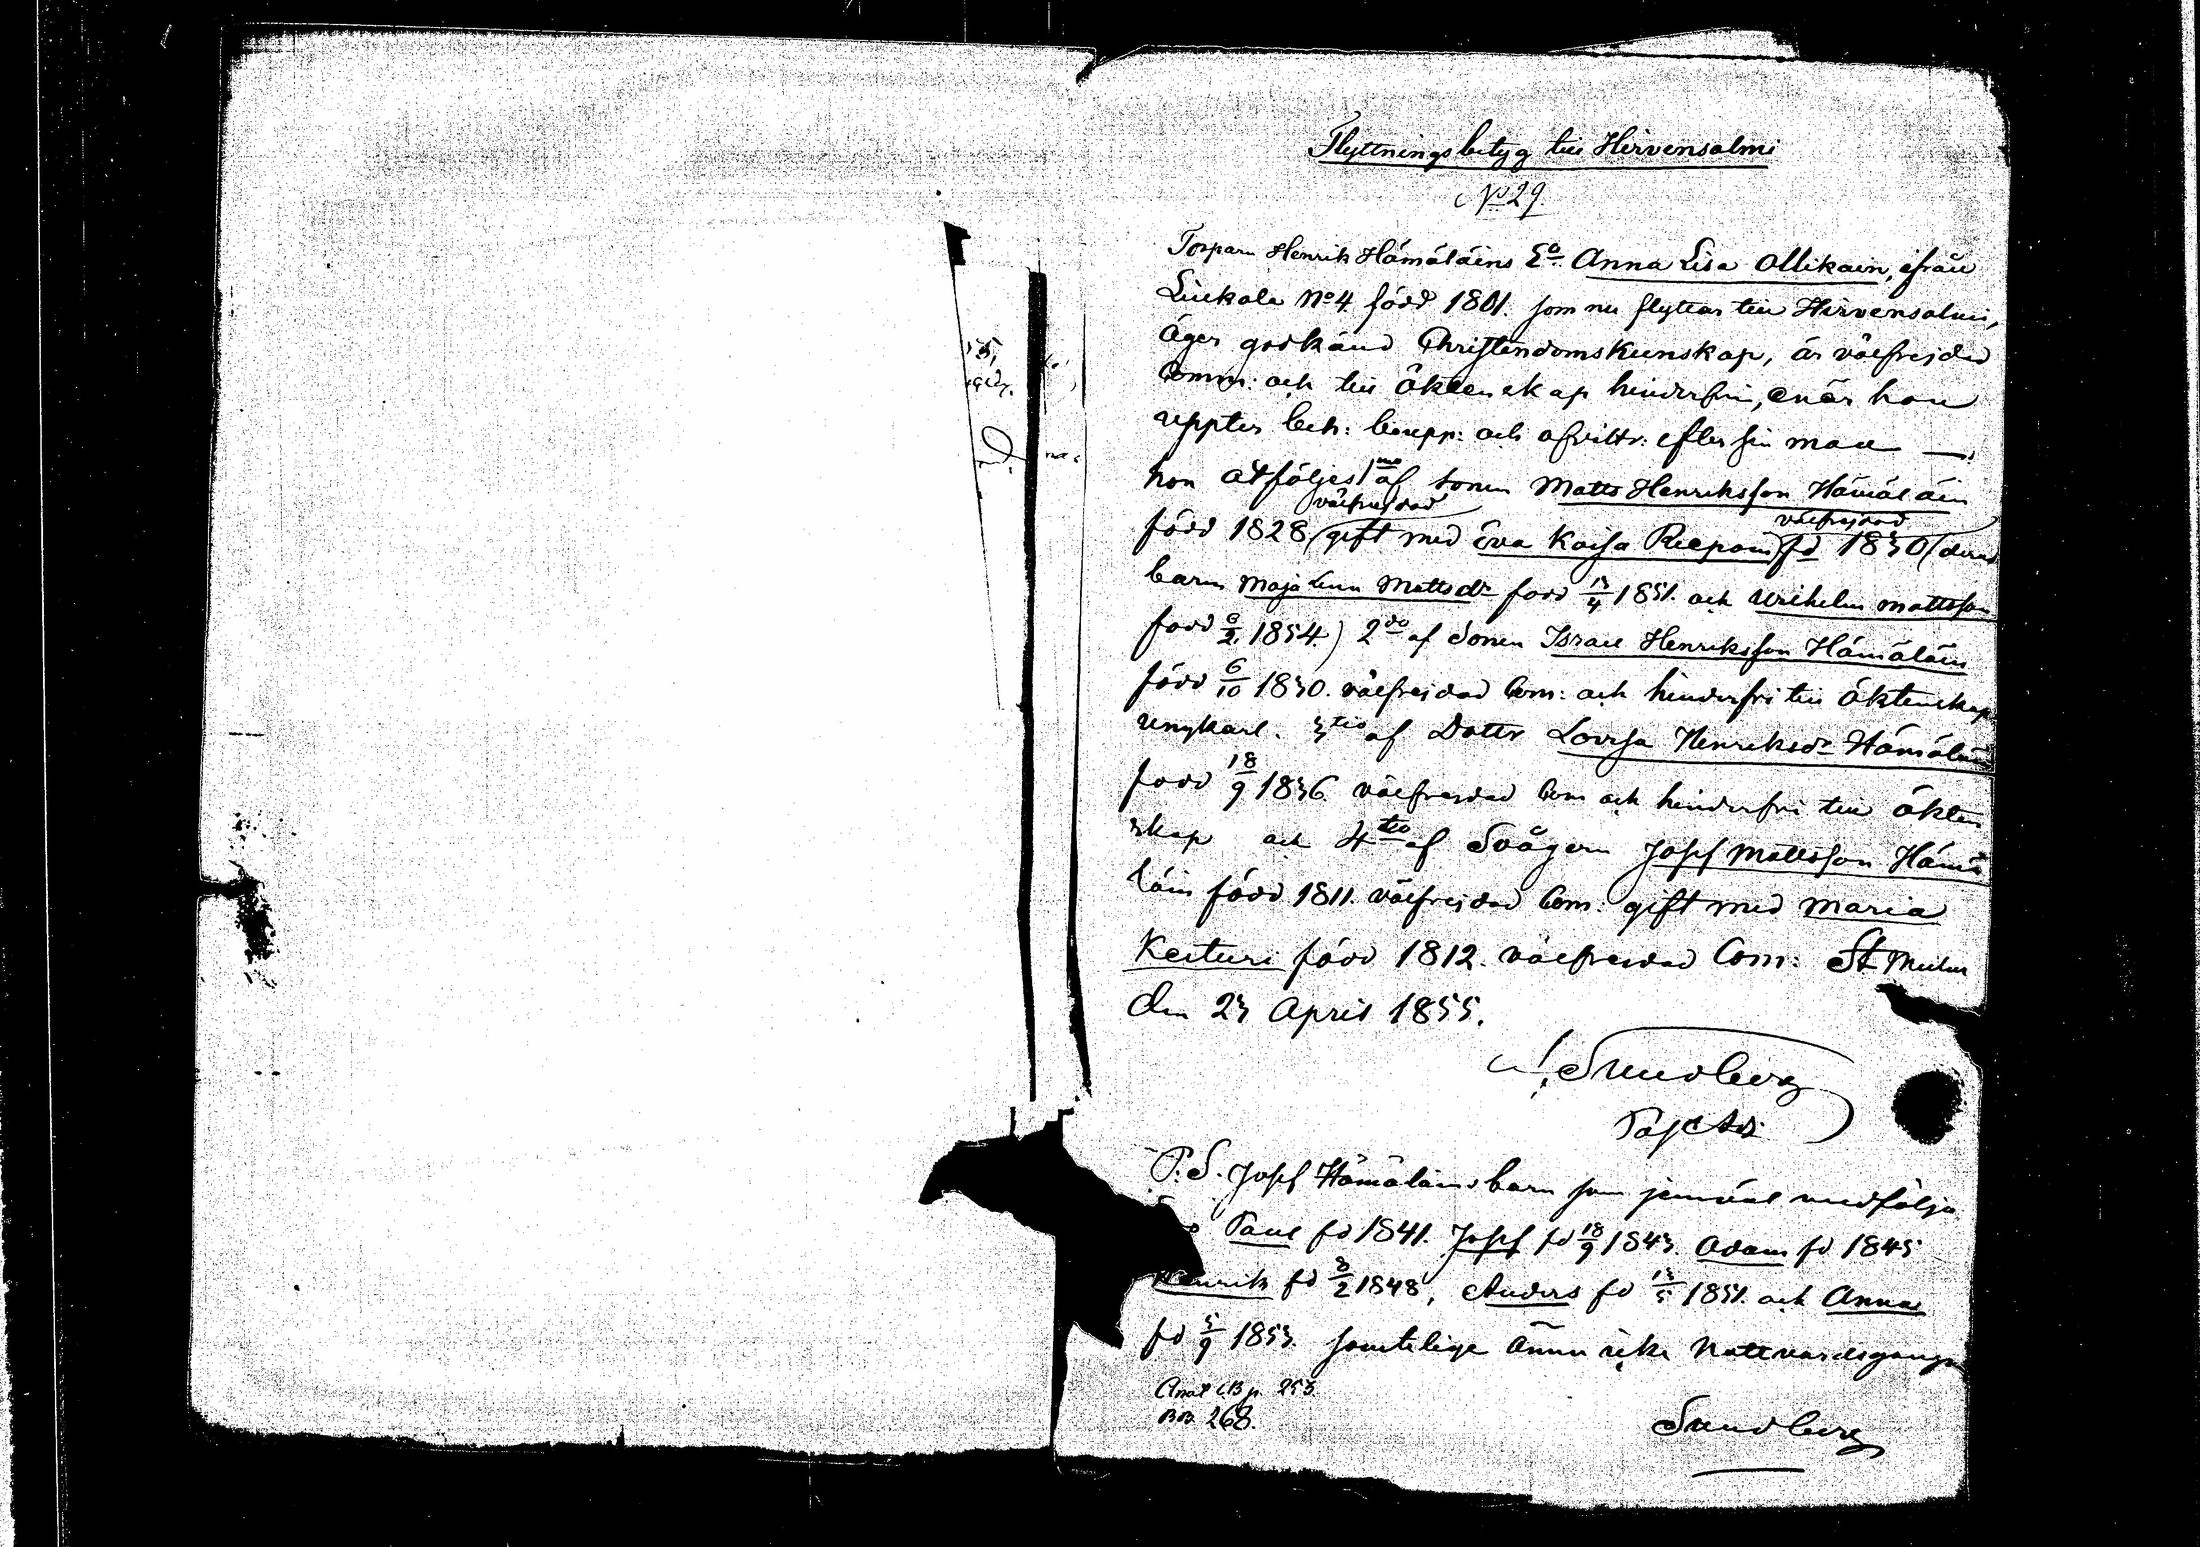 Flyttningsbetyg till Hirvensalmi
No 29.
Torparn Henrik Hämäläins Ea. Anna Lisa Ollikain, ifrån
No 4. född 1801. som nu flyttar till Hirvensalmi,
äger godkänd Christendomskunskap, är välfrejdad
Comm: och till äktenskap hinderfri, enär hon
uppter beh: bouppt: och afvittr: efter sin man —
hon åtföljes 1mo af sonen Matts Henriksson Hämäläin
välfrejdad välfrejdad
född 1828 (gift med Eva Kaisa Reponen) fd 1830 (deras
barn Maja Lena Mattsdr född 13/4 1851. och Wilhelm Mattsson
född 1854.) 2do af Sonen Israel Henriksson Hämäläin
född 6/10 1830. välfrejdad Com: och hinderfri till äktenskap
ungkarl. 3tio af Dottr Lovisa Henriksdr Hämäläin
född 18/9 1836. välfrejdad Com och hinderfri till äkten
skap och 4to af Svågern Josef Mattsson Hämä
läin född 1811. välfrejdad Com: gift med Maria
Keituri född 1812. välfrejdad Com: St Michel
den 23 April 1855.
Sundberg
P.S. Josef Hämäläins barn som jemväl medfölja
Paul fd 1841. Josef fd 18/9 1843. Adam fd 1845
Henrik fd 3/2 1848, Anders fd 13/5 1851. och Anna
fd 5/9 1853. samtelige ännu icke nattvardsgångne
CB p. 253
BB. 268.
Sundberg